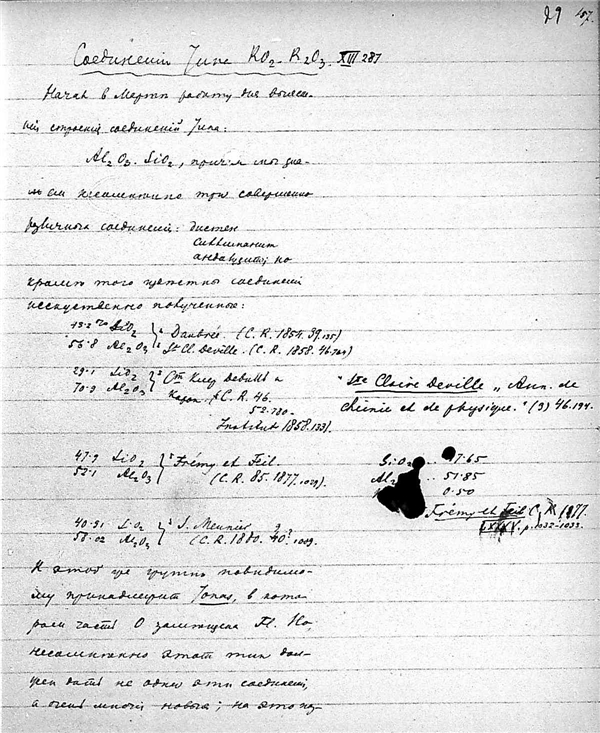 29 157.
Соединенія типа RO₂-R₂O₃. XIII 287
Начал в Марте работу для выясне-
нія строенія соединеній типа:
Al₂O₃. SiO₂, причем мы зна-
ем несомненно три совершенно
различныхъ соединенія: дистен
силлиманит
андалузит; но
кроме того известны соединенія
исскуственно полученные:
43.2 % SiO₂ Daubrée. (C.R. 1854. 39. 135)
56.8 Al₂O₃ St Cl. Deville. (C.R. 1858. 46. 764)
29.1 SiO₂
70.9 Al₂O₃ (C.R. 46.
Institut 1858. 133).
"Ste Claire Deville „ Ann. de
chimie et de physique." (3) 46. 194.
47.9 SiO₂ Frémy et Feil.
52.1 Al₂O₃ (C.R. 85. 1877. 1029).
SiO₂ .. 47.65
Al₂ .. 51.85
0.50
Frémy et Feil C.R. 1877.
p. 1032-1033.
40.91 SiO₂ S. Meunier
58.02 Al₂O₃ (C.R. 1880. 90. 1009.
К этой же группе повидимо-
му принадлежит Топаз, в кото-
ром часть O замещена Fl. Но,
несомненно этот тип дол-
жен дать не одни эти соединенія,
а очень многія новыя; на это